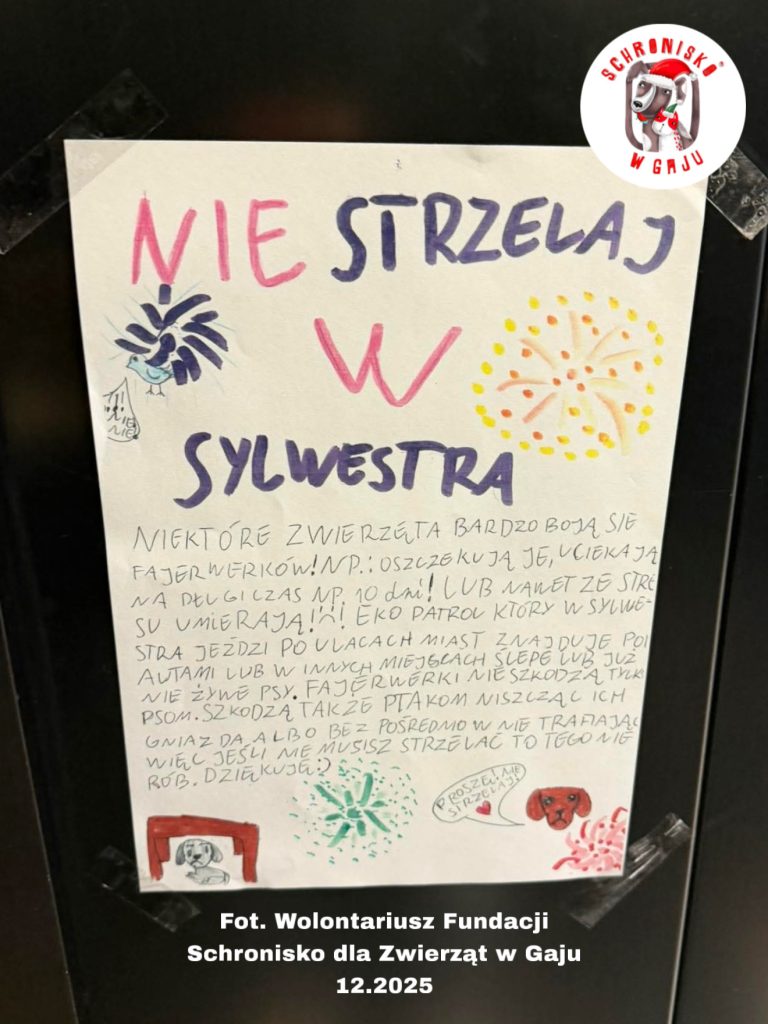 SCHRONISKO
W GAJU
NIE STRZELAJ
W
SYLWESTRA
!!!
NIE
NIE!
NIEKTÓRE ZWIERZĘTA BARDZO BOJĄ SIE
FAJERWERKÓW! NP.: OSZCZEKUJĄ JE, UCIEKAJĄ
NA DŁUGI CZAS NP. 10 dni! LUB NAWET ZE STRE
SU UMIERAJĄ! :( ! EKO PATROL KTÓRY W SYLWE-
STRA JEŹDZI PO ULACACH MIAST ZNAJDUJE POD
AUTAMI LUB W INNYCH MIEJSCACH ŚLEPE LUB JUŻ
NIE ŻYWE PSY. FAJERWERKI NIE SZKODZĄ TYLKO
PSOM. SZKODZĄ TAKŻE PTAKOM NISZCZĄC ICH
GNIAZDA ALBO BEZ POŚREDNIO W NIE TRAFIAJĄC
WIĘC JEŚLI NIE MUSISZ STRZELAĆ TO TEGO NIE
RÓB. DZIĘKUJĘ :)
PROSZĘ! NIE
STRZELAJ!
Fot. Wolontariusz Fundacji
Schronisko dla Zwierząt w Gaju
12.2025